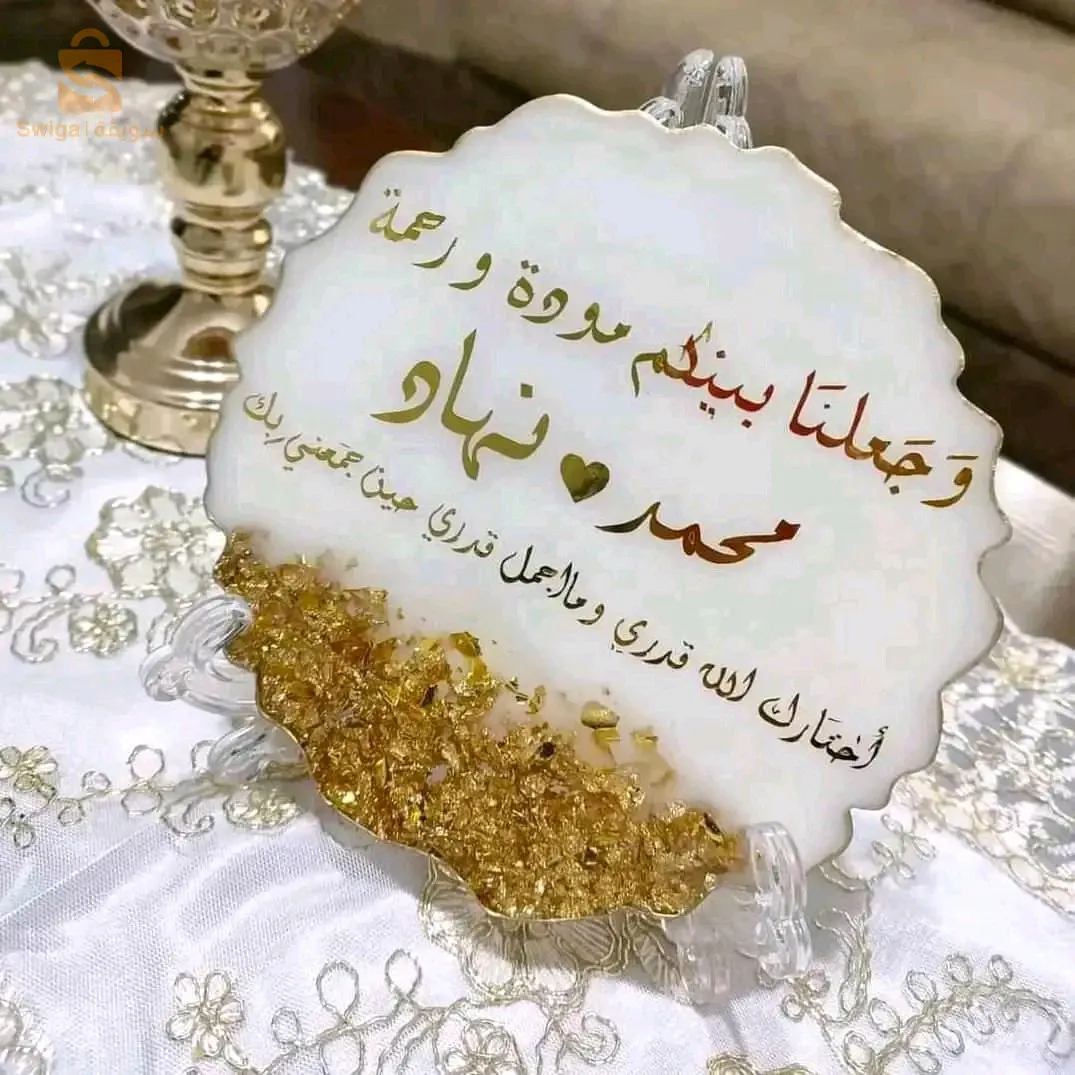 Swiga | سويقة
وَجَعلنَا بينكم مودة و رحمة
محمد ♥ نهاد
أختَارك الله قدري وما اجمل قدري حين جمَعني بك